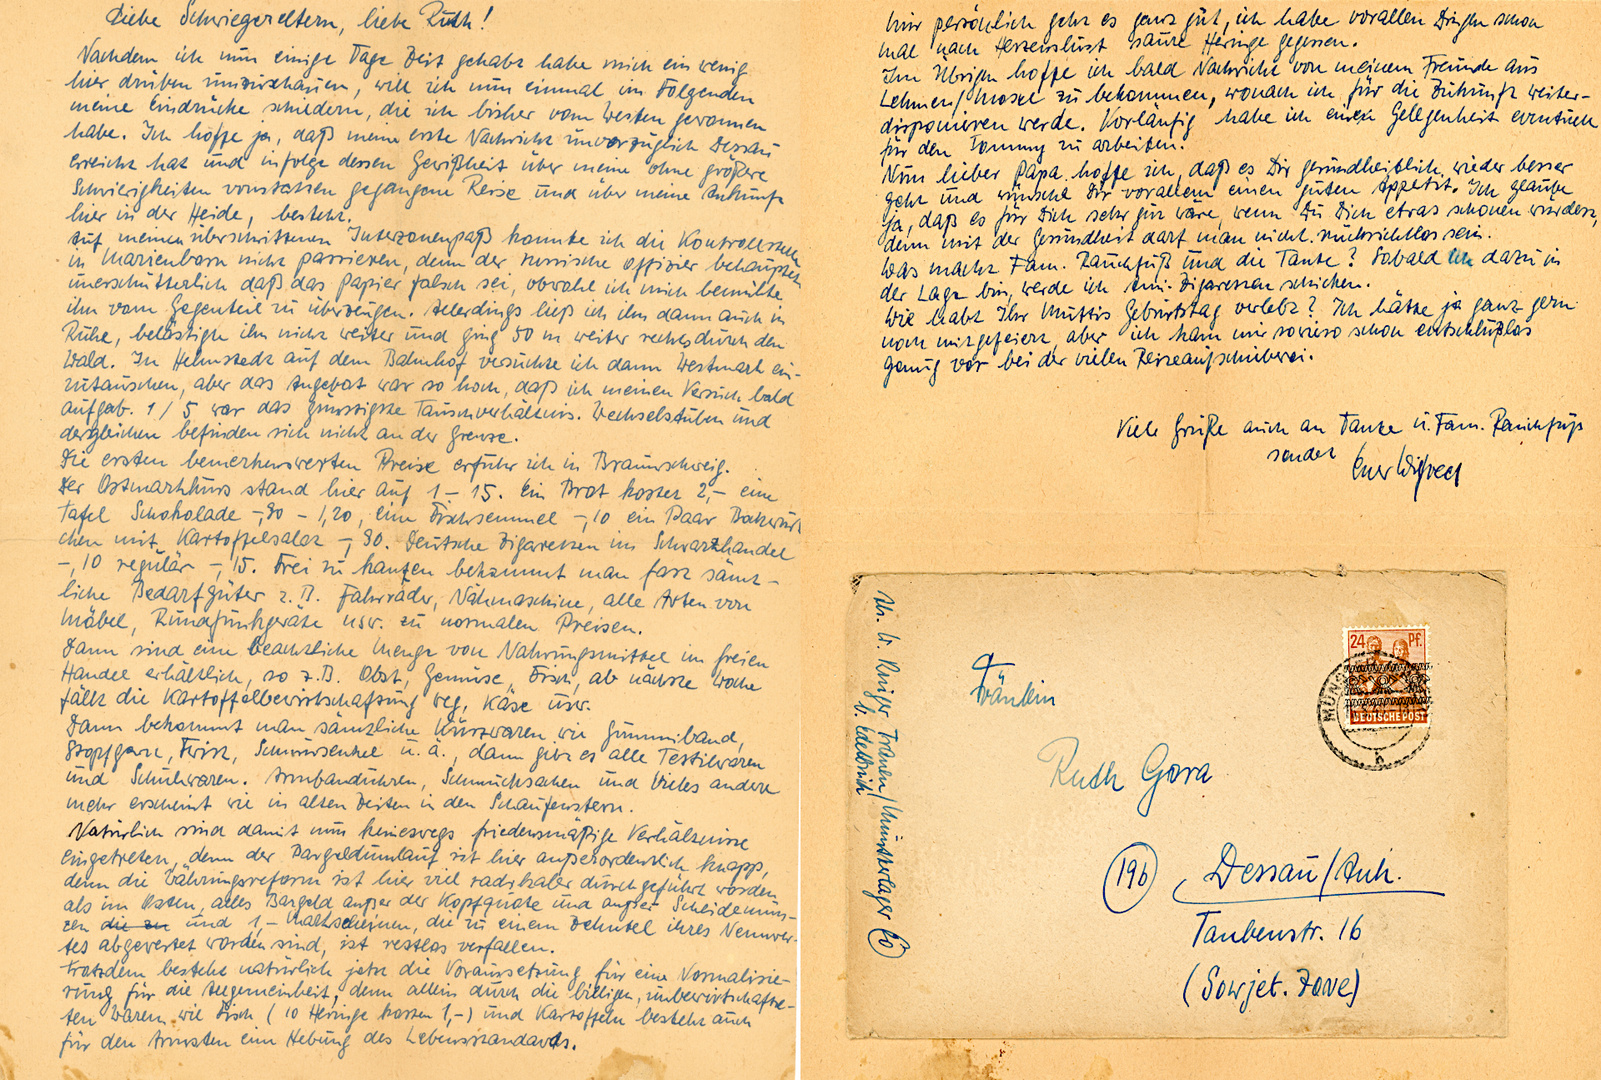 Liebe Schwiegereltern, liebe Ruth!
Nachdem ich nun einige Tage Zeit gehabt habe mich ein wenig
hier drüben umzuschauen, will ich nun einmal im Folgenden
meine Eindrücke schildern, die ich bisher vom Westen gewonnen
habe. Ich hoffe ja, daß meine erste Nachricht unvorzüglich Dessau
erreicht hat und infolge dessen Gewißheit über meine ohne größere
Schwierigkeiten vonstatten gegangene Reise und über meine Ankunft
hier in der Heide, besteht.
Auf meinen überschrittenen Interzonenpaß konnte ich die Kontrollstelle
in Marienborn nicht passieren, denn der russische Offizier behauptete
unerschütterlich daß das Papier falsch sei, obwohl ich mich bemühte
ihn vom Gegenteil zu überzeugen. Allerdings ließ ich ihn dann auch in
Ruhe, belästigte ihn nicht weiter und ging 50 m weiter rechts durch den
Wald. In Helmstedt auf dem Bahnhof versuchte ich dann Westmark ein-
zutauschen, aber das Angebot war so hoch, daß ich meinen Versuch bald
aufgab. 1/5 war das günstigste Tauschverhältnis. Wechselstuben und
dergleichen befinden sich nicht an der Grenze.
Die ersten bemerkenswerten Preise erfuhr ich in Braunschweig.
Der Ostmarkkurs stand hier auf 1 - 15. Ein Brot kostet 2,- eine
Tafel Schokolade -,80 - 1,20, eine Fischsemmel -,10 ein Paar Bockwürst
chen mit Kartoffelsalat -,80. Deutsche Zigaretten im Schwarzhandel
-,10 regulär -,15. Frei zu kaufen bekommt man fast sämt-
liche Bedarfgüter z.B. Fahrräder, Nähmaschine, alle Arten von
Möbel, Rundfunkgeräte usw. zu normalen Preisen.
Dann sind eine beachtliche Menge von Nahrungsmittel im freien
Handel erhältlich, so z.B. Obst, Gemüse, Fisch, ab nächste Woche
fällt die Kartoffelbewirtschaftung weg, Käse usw.
Dann bekommt man sämtliche Kurzwaren wie Gummiband,
Stopfgarn, Twist, Schnürsenkel u. ä., dann gibt es alle Textilwaren
und Schuhwaren. Armbanduhren, Schmucksachen und Vieles andere
mehr erscheint wie in alten Zeiten in den Schaufenstern.
Natürlich sind damit nun keineswegs friedensmäßige Verhältnisse
eingetreten, denn der Bargeldumlauf ist hier außerordentlich knapp,
denn die Währungsreform ist hier viel radikaler durchgeführt worden
als im Osten, alles Bargeld außer der Kopfquote und außer Scheidemün-
zen die zu und 1,- Markscheinen, die zu einem Zehntel ihres Nennwer-
tes abgewertet worden sind, ist restlos verfallen.
Trotzdem besteht natürlich jetzt die Voraussetzung für eine Normalisie-
rung für die Allgemeinheit, denn allein durch die billigen, unbewirtschafte-
ten Waren wie Fisch (10 Heringe kosten 1,-) und Kartoffeln besteht auch
für den Ärmsten eine Hebung des Lebensstandards.
Mir persönlich geht es ganz gut, ich habe vorallen Dingen schon
mal nach Herzenslust saure Heringe gegessen.
Im Übrigen hoffe ich bald Nachricht von meinem Freunde aus
Lehmen/Mosel zu bekommen, wonach ich für die Zukunft weiter-
disponieren werde. Vorläufig habe ich eine Gelegenheit eventuell
für den Tommy zu arbeiten.
Nun lieber Papa hoffe ich, daß es Dir gesundheitlich wieder besser
geht und wünsche Dir vorallem einen guten Appetit. Ich glaube
ja, daß es für Dich sehr gut wäre, wenn Du Dich etwas schonen würdest,
denn mit der Gesundheit darf man nicht rücksichtlos sein.
Was macht Fam. Rauchfuß und die Tante? Sobald ich dazu in
der Lage bin, werde ich Ami. Zigaretten schicken.
Wie habt Ihr Muttis Geburtstag verlebt? Ich hätte ja ganz gern
noch mitgefeiert, aber ich kam mir sowieso schon entschlußlos
genug vor bei der vielen Reiseaufschieberei.
Viele Grüße auch an Tante u. Fam. Rauchfuß
sendet Euer Wilfried
Abs. W. Krüger Trauen/Munsterlager 20
b. Edelbrich
24 Pf.
DEUTSCHE POST
Fräulein
Ruth Gora
19b Dessau/Anh.
Taubenstr. 16
(Sowjet. Zone)